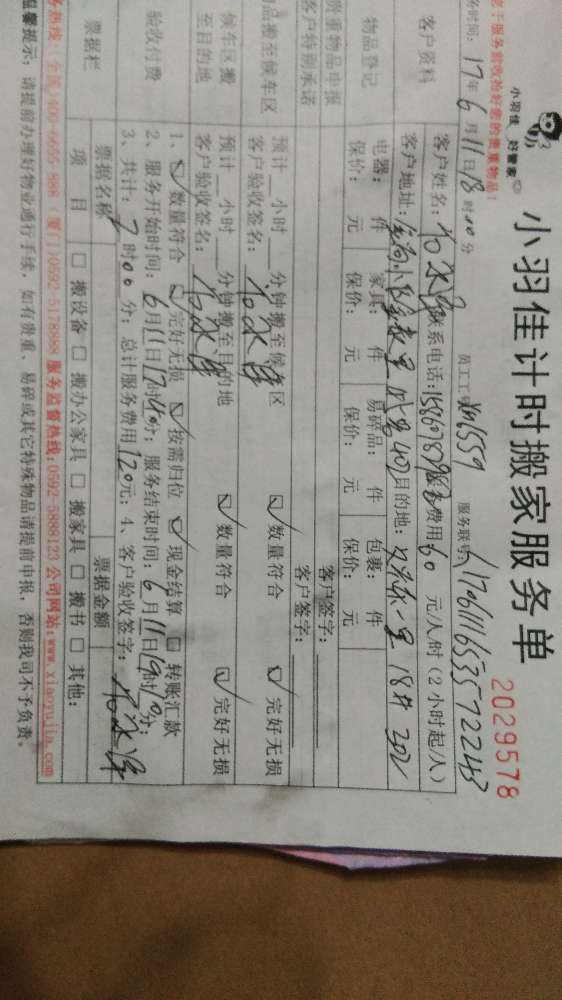 小羽佳 好管家
小羽佳计时搬家服务单
2029578
务时间：17年6月11日18时00分 员工工号 Xm6559 服务联单 17061116535722243
客户资料
客户姓名： 联系电话： 服务费用 60 元/人/时（2小时起/人）
客户地址： 目的地： 18# 202
物品登记
电器： 件 家具： 件 易碎品： 件 包裹： 件
保价： 元 保价： 元 保价： 元 保价： 元
贵重物品申报 客户签字：
客户特别承诺 客户签字：
物品搬至候车区
预计 小时 分钟搬至候车区 数量符合 完好无损
客户验收签名：
候车区搬至目的地
预计 小时 分钟搬至目的地 数量符合 完好无损
客户验收签名：
验收付费
1、 数量符合 完好无损 按需归位 现金结算 转账汇款
2、服务开始时间：6月11日17时 分；服务结束时间：6月11日19时 分；
3、共计：2时00分；总计服务费用120元；4、客户验收签字：
票据栏
票据名称 票据金额
项目 搬设备 搬办公家具 搬家具 搬书 其他：
务热线：全国 400-6695-888（厦门）0592-5178888 服务监督热线：0592-5888123 公司网站：www.xiaoyujia.com
温馨提示：请提前办理好物业通行手续，如有贵重、易碎或其它特殊物品请提前申报，否则我司不予负责。